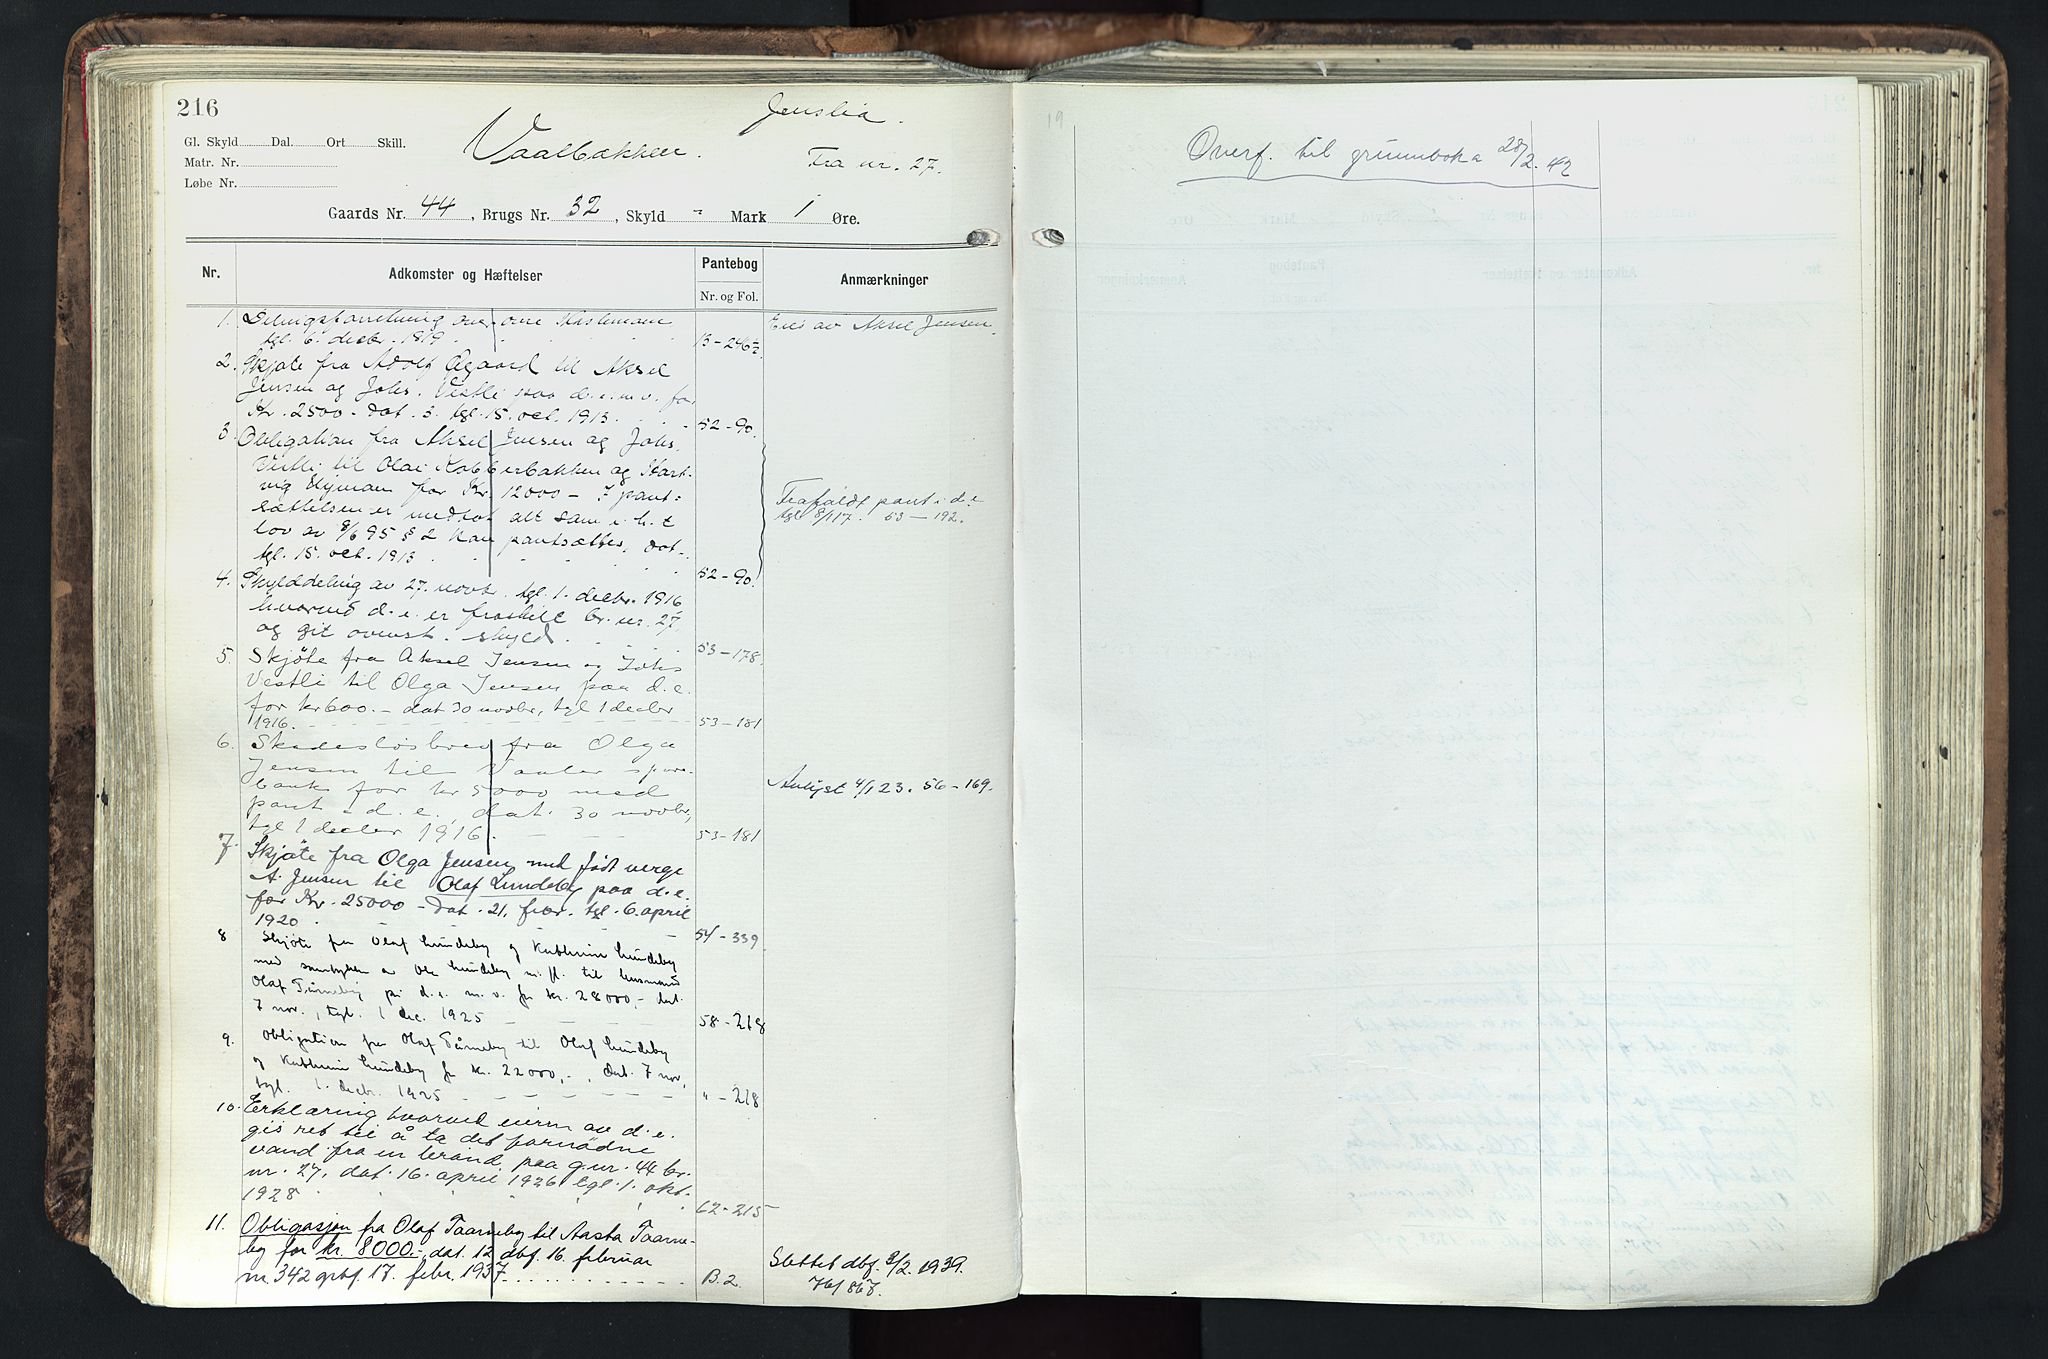 216
Jenslia.
Gl. Skyld Dal. Ort Skill.
Vaalbakken.
Matr. Nr.
Fra nr. 27.
Løbe Nr.
Gaards Nr. 44, Brugs Nr. 32, Skyld - Mark 1 Øre.
Nr. Adkomster og Hæftelser Pantebog Anmærkninger
Nr. og Fol.
1. Delingsforretning over
tgl. 6. decbr. 1819 13-246½
Eies av Aksel Jensen.
2. Skjøte fra Adolf Øgaard til Aksel
Jensen og Johs. Vestli paa d.e.m.v. for
Kr. 2500- dat. 3. tgl. 15. oct. 1913. 52-90.
3. Obligation fra Aksel Jensen og Johs.
Vestli til Olai Kobberbakken og Hart-
vig Nyman for Kr. 12000- I pant-
sættelsen er medtat alt som i h.t.
lov av 8/6 95 § 2 kan pantsættes, dat.
tgl. 15. oct. 1913 52-90.
Frafaldt pant i d.e.
tgl 8/1 17. 53-192.
4. Skylddeling av 27. novbr. tgl. 1. decbr. 1916
hvorved d.e. er fraskilt br. nr. 27
og git ovenst. skyld. 53-178.
5. Skjøte fra Aksel Jensen og Johs
Vestli til Olga Jensen paa d.e.
for kr 600.- dat 30 novbr, tgl 1 decbr
1916. 53-181
6. Skadesløsbrev fra Olga
Jensen til Vaaler spare-
bank for kr 5000 med
pant i d.e., dat. 30 novbr,
tgl 1 decbr 1916. 53-181
Avlyst 4/1 23. 56-169.
7. Skjøte fra Olga Jensen med født verge
A. Jensen til Olaf Lundeby paa d.e.
for Kr. 25000 - dat. 21. febr. tgl. 6. april
1920. 54-339
8 Skjøte fra Olaf Lundeby og Kathrine Lundeby
med samtykke av Ole Lundeby m.fl. til husmand
Olaf Tårneby på d.e.m.v. for kr. 28000,- dat.
7 nov., tgl. 1 dec. 1925 58-218
9. Obligation fra Olaf Tårneby til Olaf Lundeby
og Kathrine Lundeby for kr. 22000,-, dat. 7 nov,
tgl. 1. decbr. 1925 " -218
10. Erklæring hvorved eieren av d.e.
gis ret til å ta det fornødne
vand fra en brønd paa g.nr. 44 br.
nr. 27, dat. 16. april 1926 tgl. 1. okt.
1928 62-215
11. Obligasjon fra Olaf Taarneby til Aasta Taarne-
by for kr. 8000.-, dat. 12 dbf. 16. februar
nr. 342 grbf. 17. febr. 1937 B.2.
Slettet dbf. 3/2. 1939.
76/867.
19
Overf. til grunnboka 28/2. 42